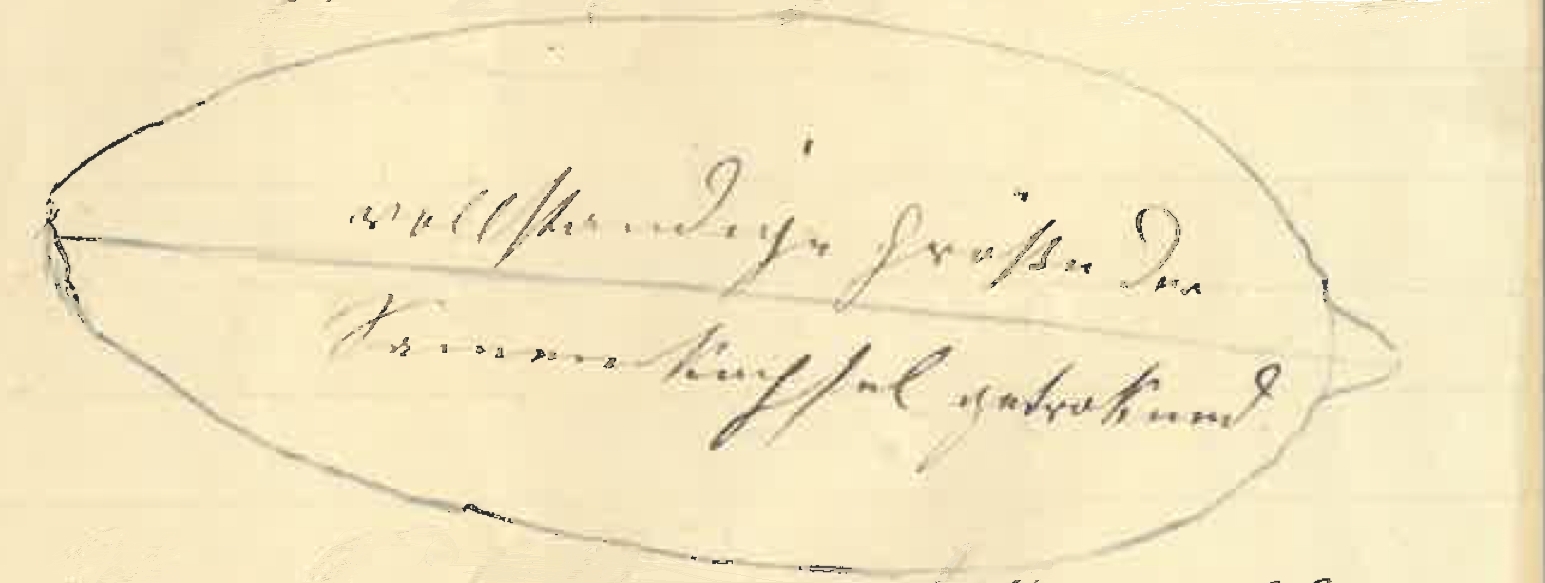 vollständige größe der
Samenkapsel getrokned